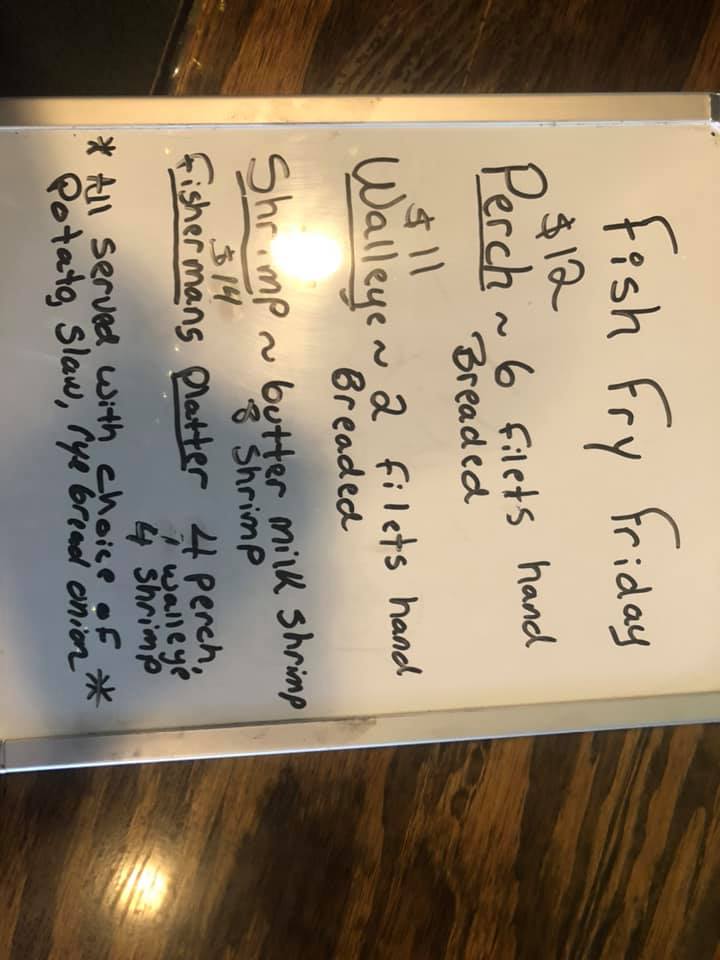 Fish Fry Friday
$12
Perch ~ 6 filets hand
Breaded
$11
Walleye ~ 2 filets hand
Breaded
Shrimp ~ butter milk shrimp
8 Shrimp
$14
Fishermans Platter 4 perch,
1 walleye
4 shrimp
* All served with choice of *
Potato, Slaw, rye bread onion